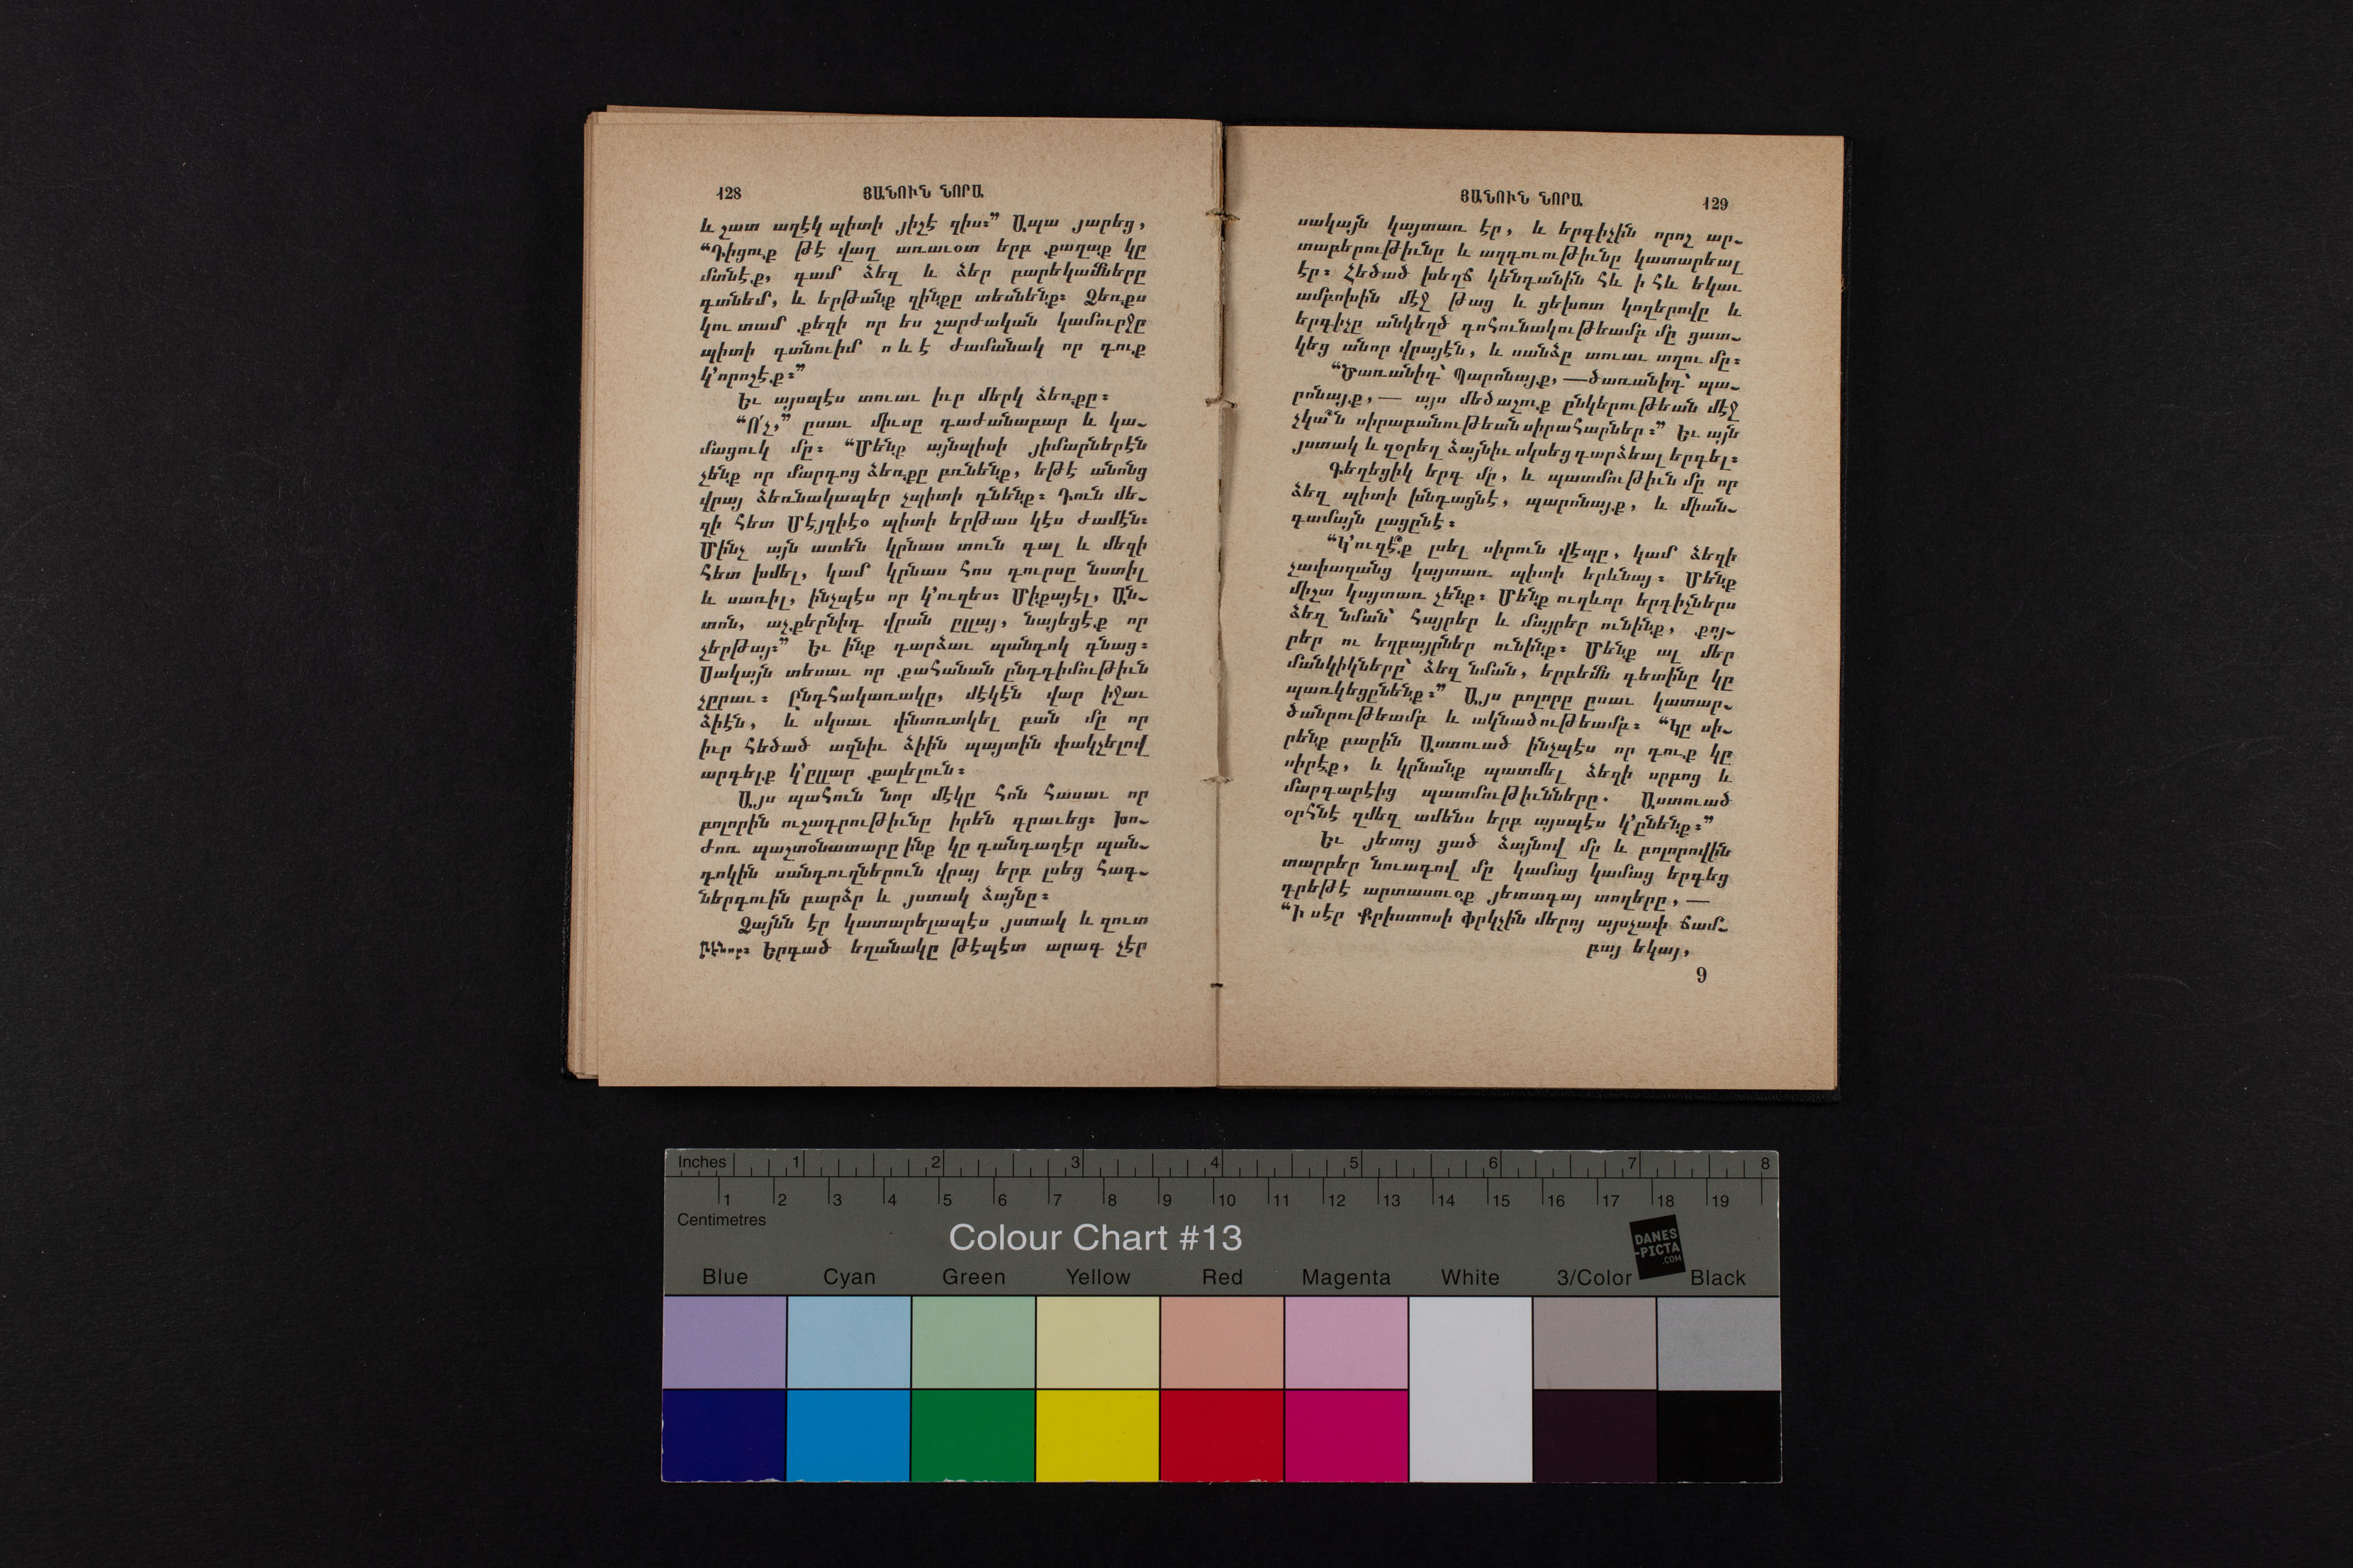 128
ՅԱՆՈՒՆ ՆՈՐԱ
և շատ աղէկ պիտի յիշէ զիս։” Ապա յարեց,
“Դիցուք թէ վաղ առաւօտ երբ քաղաք կը
մտնէք, գամ ձեզ և ձեր բարեկամները
գտնեմ, և երթանք զինքը տեսնենք։ Ձեռքս
կու տամ քեզի որ ես շարժական կամուրջը
պիտի գտնուիմ ո և է ժամանակ որ դուք
կ՚որոշէք։”
Եւ այսպէս տուաւ իւր մերկ ձեռքը։
“Ո՛չ,” ըսաւ միւսը դաժանաբար և կա-
մացուկ մը։ “Մենք այնպիսի յիմարներէն
չենք որ մարդոց ձեռքը բռնենք, եթէ անոնց
վրայ ձեռնակապեր չպիտի դնենք։ Դուն մե-
զի հետ Մէյզիէօ պիտի երթաս կէս ժամէն։
Մինչ այն ատեն կրնաս տուն գալ և մեզի
հետ խմել, կամ կրնաս հոս դուրսը նստիլ
և սառիլ, ինչպէս որ կ՚ուզես։ Միքայէլ, Ան-
տոն, աչքերնիդ վրան ըլլայ, նայեցէք որ
չերթայ։” Եւ ինք դարձաւ պանդոկ գնաց։
Սակայն տեսաւ որ քահանան ընդդիմութիւն
չըրաւ։ Ընդհակառակը, մէկէն վար իջաւ
ձիէն, և սկսաւ փնտռտկել բան մը որ
իւր հեծած աղնիւ ձիին պայտին փակչելով
արգելք կ՚ըլլար քալելուն։
Այս պահուն նոր մէկը հոն հասաւ որ
բոլորին ուշադրութիւնը իրեն գրաւեց։ Խո-
ժոռ պաշտօնատարը ինք կը դանդաղէր պան-
դոկին սանդուղներուն վրայ երբ լսեց հագ-
ներգուին բարձր և յստակ ձայնը։
Ձայնն էր կատարելապէս յստակ և զուտ
թէնոր։ Երգած եղանակը թէպէտ արագ չէր
ՅԱՆՈՒՆ ՆՈՐԱ
129
սակայն կայտառ էր, և երգիչին որոշ ար-
տաբերութիւնը և ազդուութիւնը կատարեալ
էր։ Հեծած խեղճ կենդանին հև ի հև եկաւ
ամբոխին մէջ թաց և ցեխոտ կողերովը և
երգիչը անկեղծ գոհունակութեամբ մը ցատ-
կեց անոր վրայէն, և սանձը տուաւ տղու մը։
“Ծառանիդ՝ Պարոնայք, —ծառանիդ՝ պա-
րոնայք, — այս մեծաշուք ընկերութեան մէջ
չկա՞ն սիրաբանութեան սիրահարներ։” Եւ այն
յստակ և զօրեղ ձայնիւ սկսեց դարձեալ երգել։
Գեղեցիկ երգ մը, և պատմութիւն մը որ
ձեզ պիտի խնդացնէ, պարոնայք, և միան-
գամայն լացընէ։
“Կ՚ուզէ՞ք լսել սիրուն վէպը, կամ ձեզի
չափազանց կայտառ պիտի երևնայ։ Մենք
միշտ կայտառ չենք։ Մենք ուղևոր երգիչներս
ձեզ նման՝ հայրեր և մայրեր ունինք, քոյ-
րեր ու եղբայրներ ունինք։ Մենք ալ մեր
մանկիկները՝ ձեզ նման, երբեմն գետինը կը
պառկեցընենք։” Այս բոլորը ըսաւ կատար-
ծանրութեամբ և ակնածութեամբ։ “Կը սի-
րենք բարին Աստուած ինչպէս որ դուք կը
սիրէք, և կրնանք պատմել ձեզի սրբոց և
մարգարէից պատմութիւնները. Աստուած
օրհնէ զմեզ ամենս երբ այսպէս կ՚ընենք։”
Եւ յետոյ ցած ձայնով մը և բոլորովին
տարբեր նուագով մը կամաց կամաց երգեց
գրեթէ արտասուօք յետագայ տողերը, —
“Ի սէր Քրիստոսի Փրկչին մերոյ այսչափ ճամ-
բայ եկայ,
9
Inches 1 2 3 4 5 6 7 8
1 2 3 4 5 6 7 8 9 10 11 12 13 14 15 16 17 18 19
Centimetres
Colour Chart #13
DANES
-PICTA
.COM
Blue Cyan Green Yellow Red Magenta White 3/Color Black